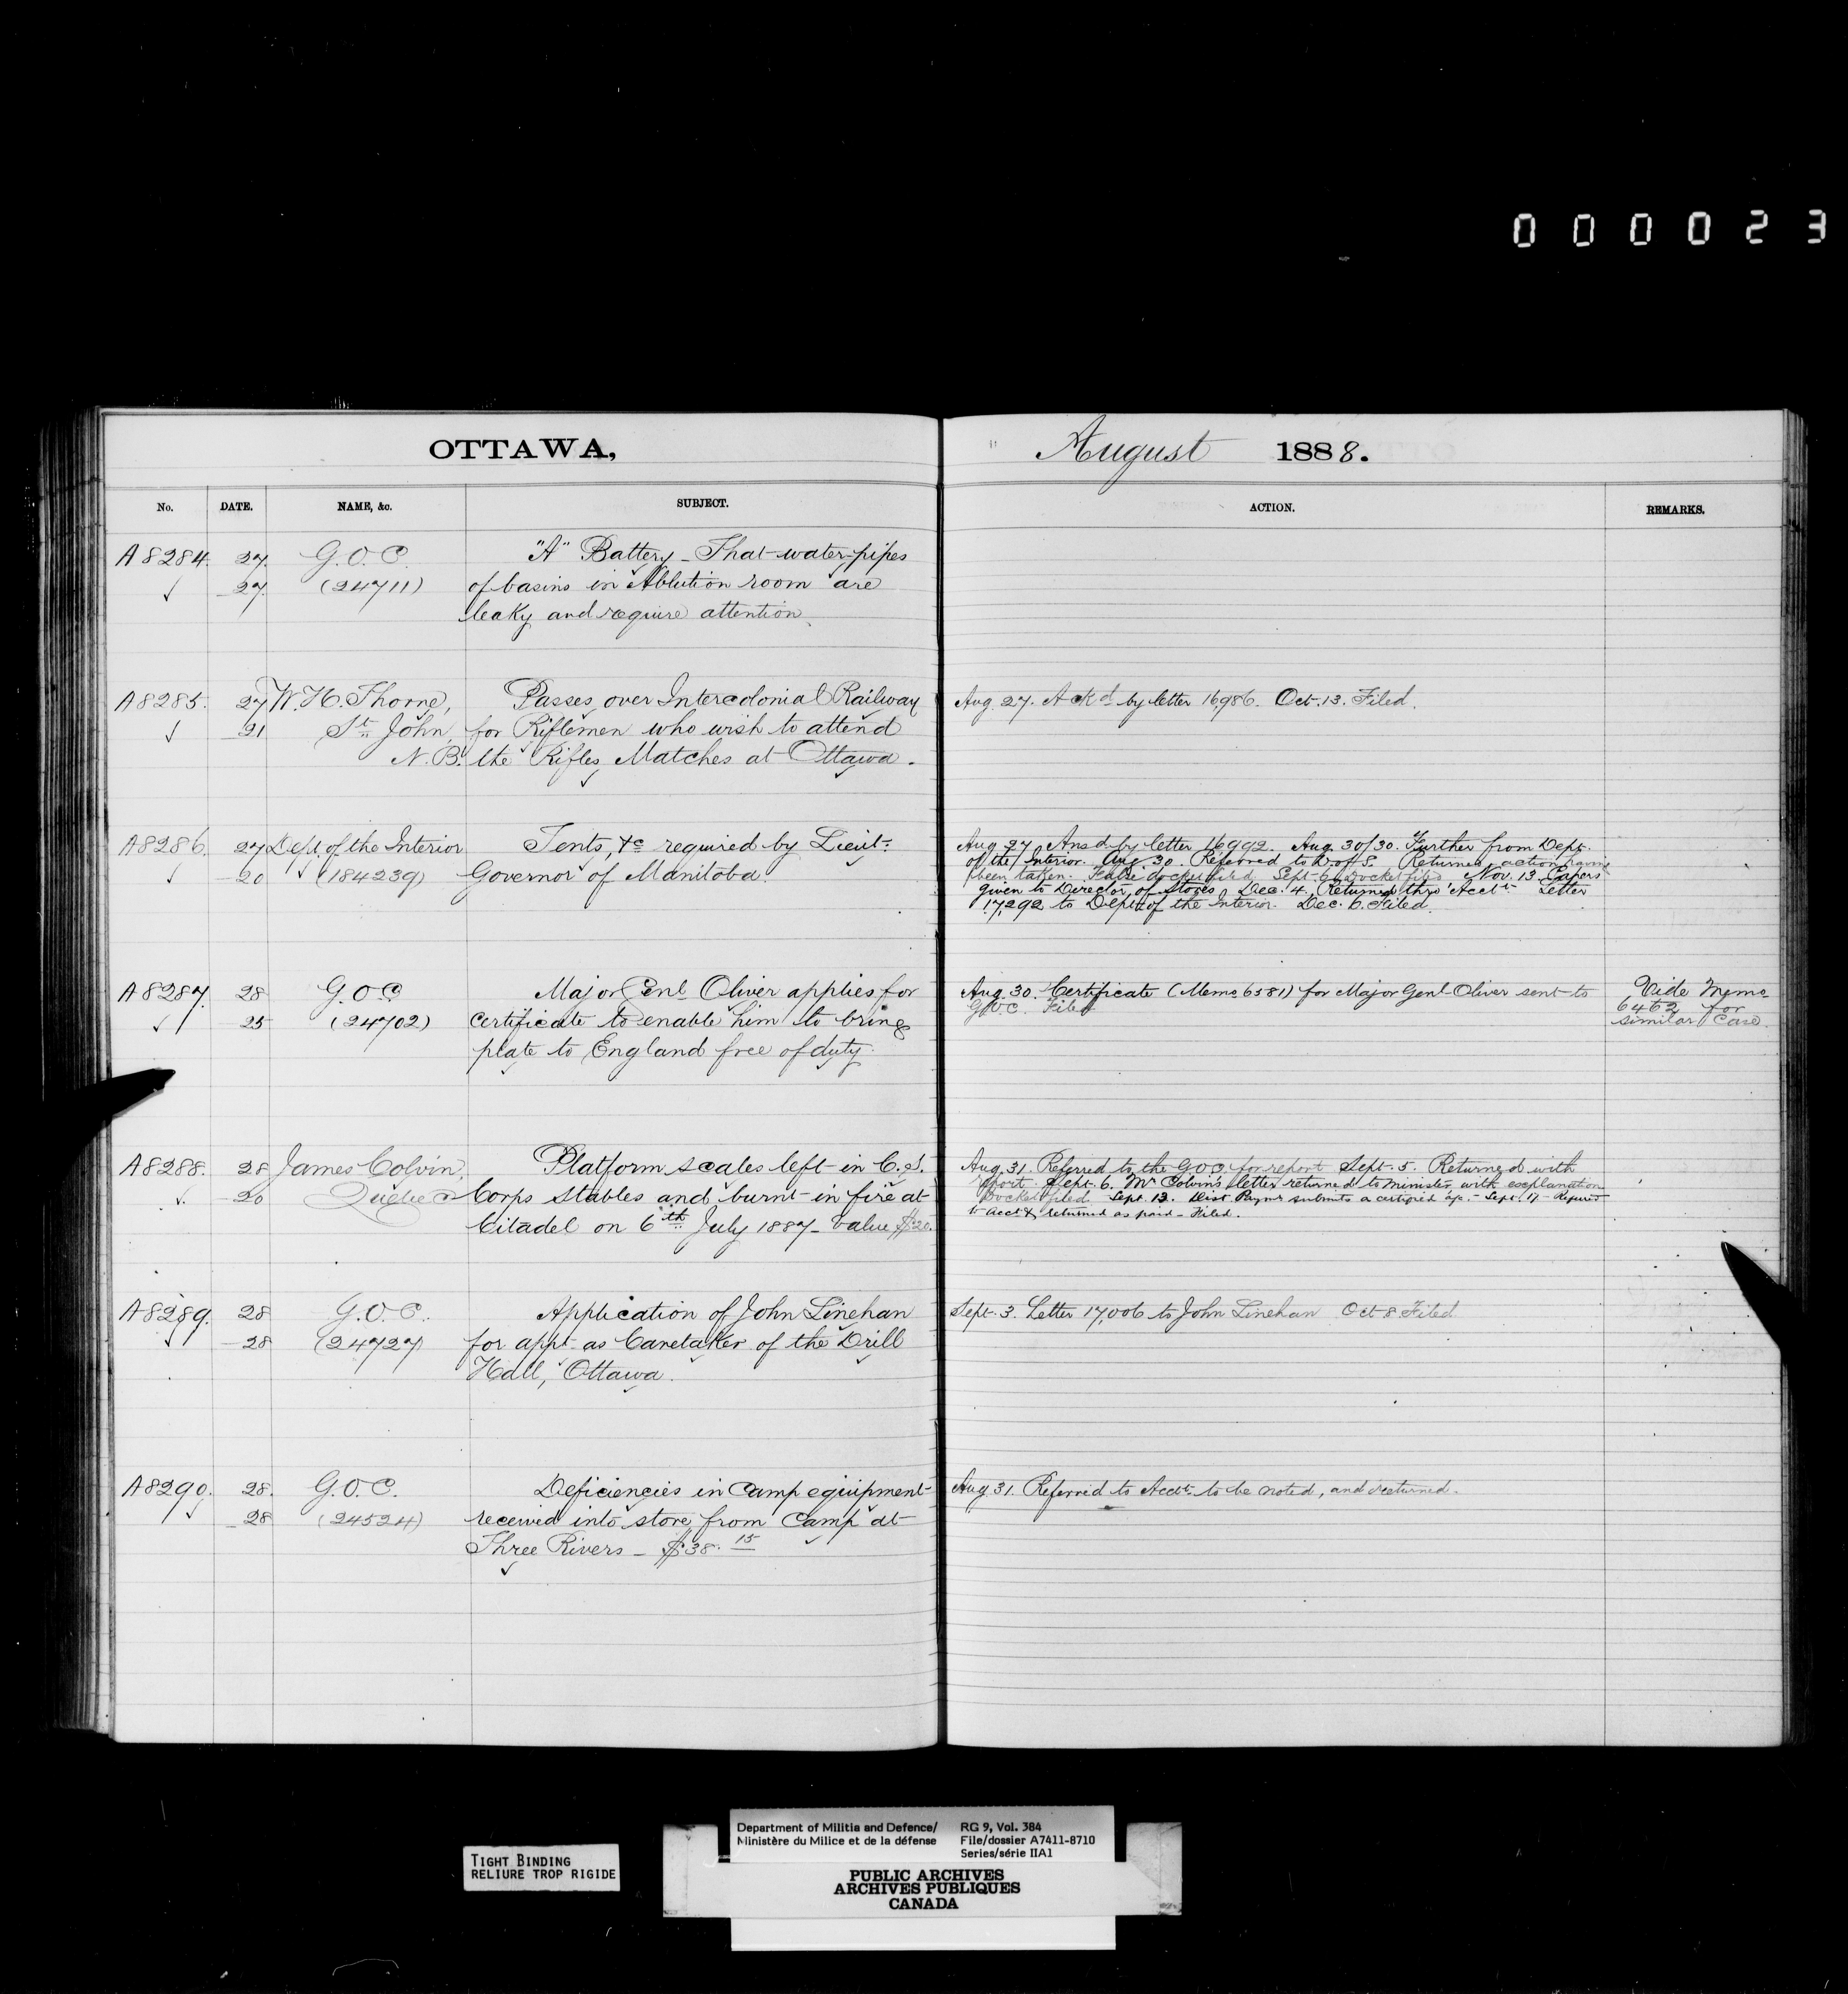 000023
OTTAWA, August 1888.
No. DATE. NAME, &c. SUBJECT. ACTION. REMARKS.
A8284. 27. G.O.C. "A" Battery – That water-pipes
27 (24711) of basins in Ablution room are
leaky and require attention.
A8285. 27 W. H. Thorne, Passes over Intercolonial Railway
21 St. John, for Riflemen who wish to attend
N.B. the Rifles Matches at Ottawa.
Aug. 27. Ackd by letter 16986. Oct. 13. Filed.
A8286. 27 Dept. of the Interior Tents, &c required by Lieut.
20 (184239) Governor of Manitoba.
Aug 27 Ansd by letter 16992. Aug. 30/30. Further from Dept.
of the Interior. Aug. 30. Referred to D. of S. Returned action having
been taken. docket filed Sept. 6 Docket filed Nov. 13 Papers
given to Director of Stores. Dec. 4. Returned thro' Acctt Letter
17,292 to Dept. of the Interior. Dec. 6. Filed.
A8287. 28 G.O.C. Major Genl Oliver applies for
25 (24702) certificate to enable him to bring
plate to England free of duty.
Aug. 30. Certificate (Memo 6581) for Major Genl Oliver sent to
G.O.C. Filed
Vide Memo
6462 for
similar Case.
A8288. 28 James Colvin, Platform scales left in C. S.
20 Quebec Corps Stables and burnt in fire at
Citadel on 6th July 1887 – value $20.
Aug. 31. Referred to the G.O.C. for report Sept. 5. Returned with
report. Sept. 6. Mr Colvin's letter returned to Minister with explanation
Docket filed Sept. 13. Dist Paymr submits a certified a/c. – Sept. 17 – Referred
to Acctt & returned as paid – Filed.
A8289. 28 G.O.C. Application of John Linehan
28 (24727) for appt. as Caretaker of the Drill
Hall, Ottawa.
Sept. 3. Letter 17,006 to John Linehan Oct 8 Filed
A8290. 28. G.O.C. Deficiencies in Camp equipment
28 (24524) received into store from Camp at
Three Rivers – $38.15
Aug. 31. Referred to Acctt. to be noted, and returned.
TIGHT BINDING
RELIURE TROP RIGIDE
Department of Militia and Defence/ RG 9, Vol. 384
Ministère du Milice et de la défense File/dossier A7411-8710
Series/série IIA1
PUBLIC ARCHIVES
ARCHIVES PUBLIQUES
CANADA